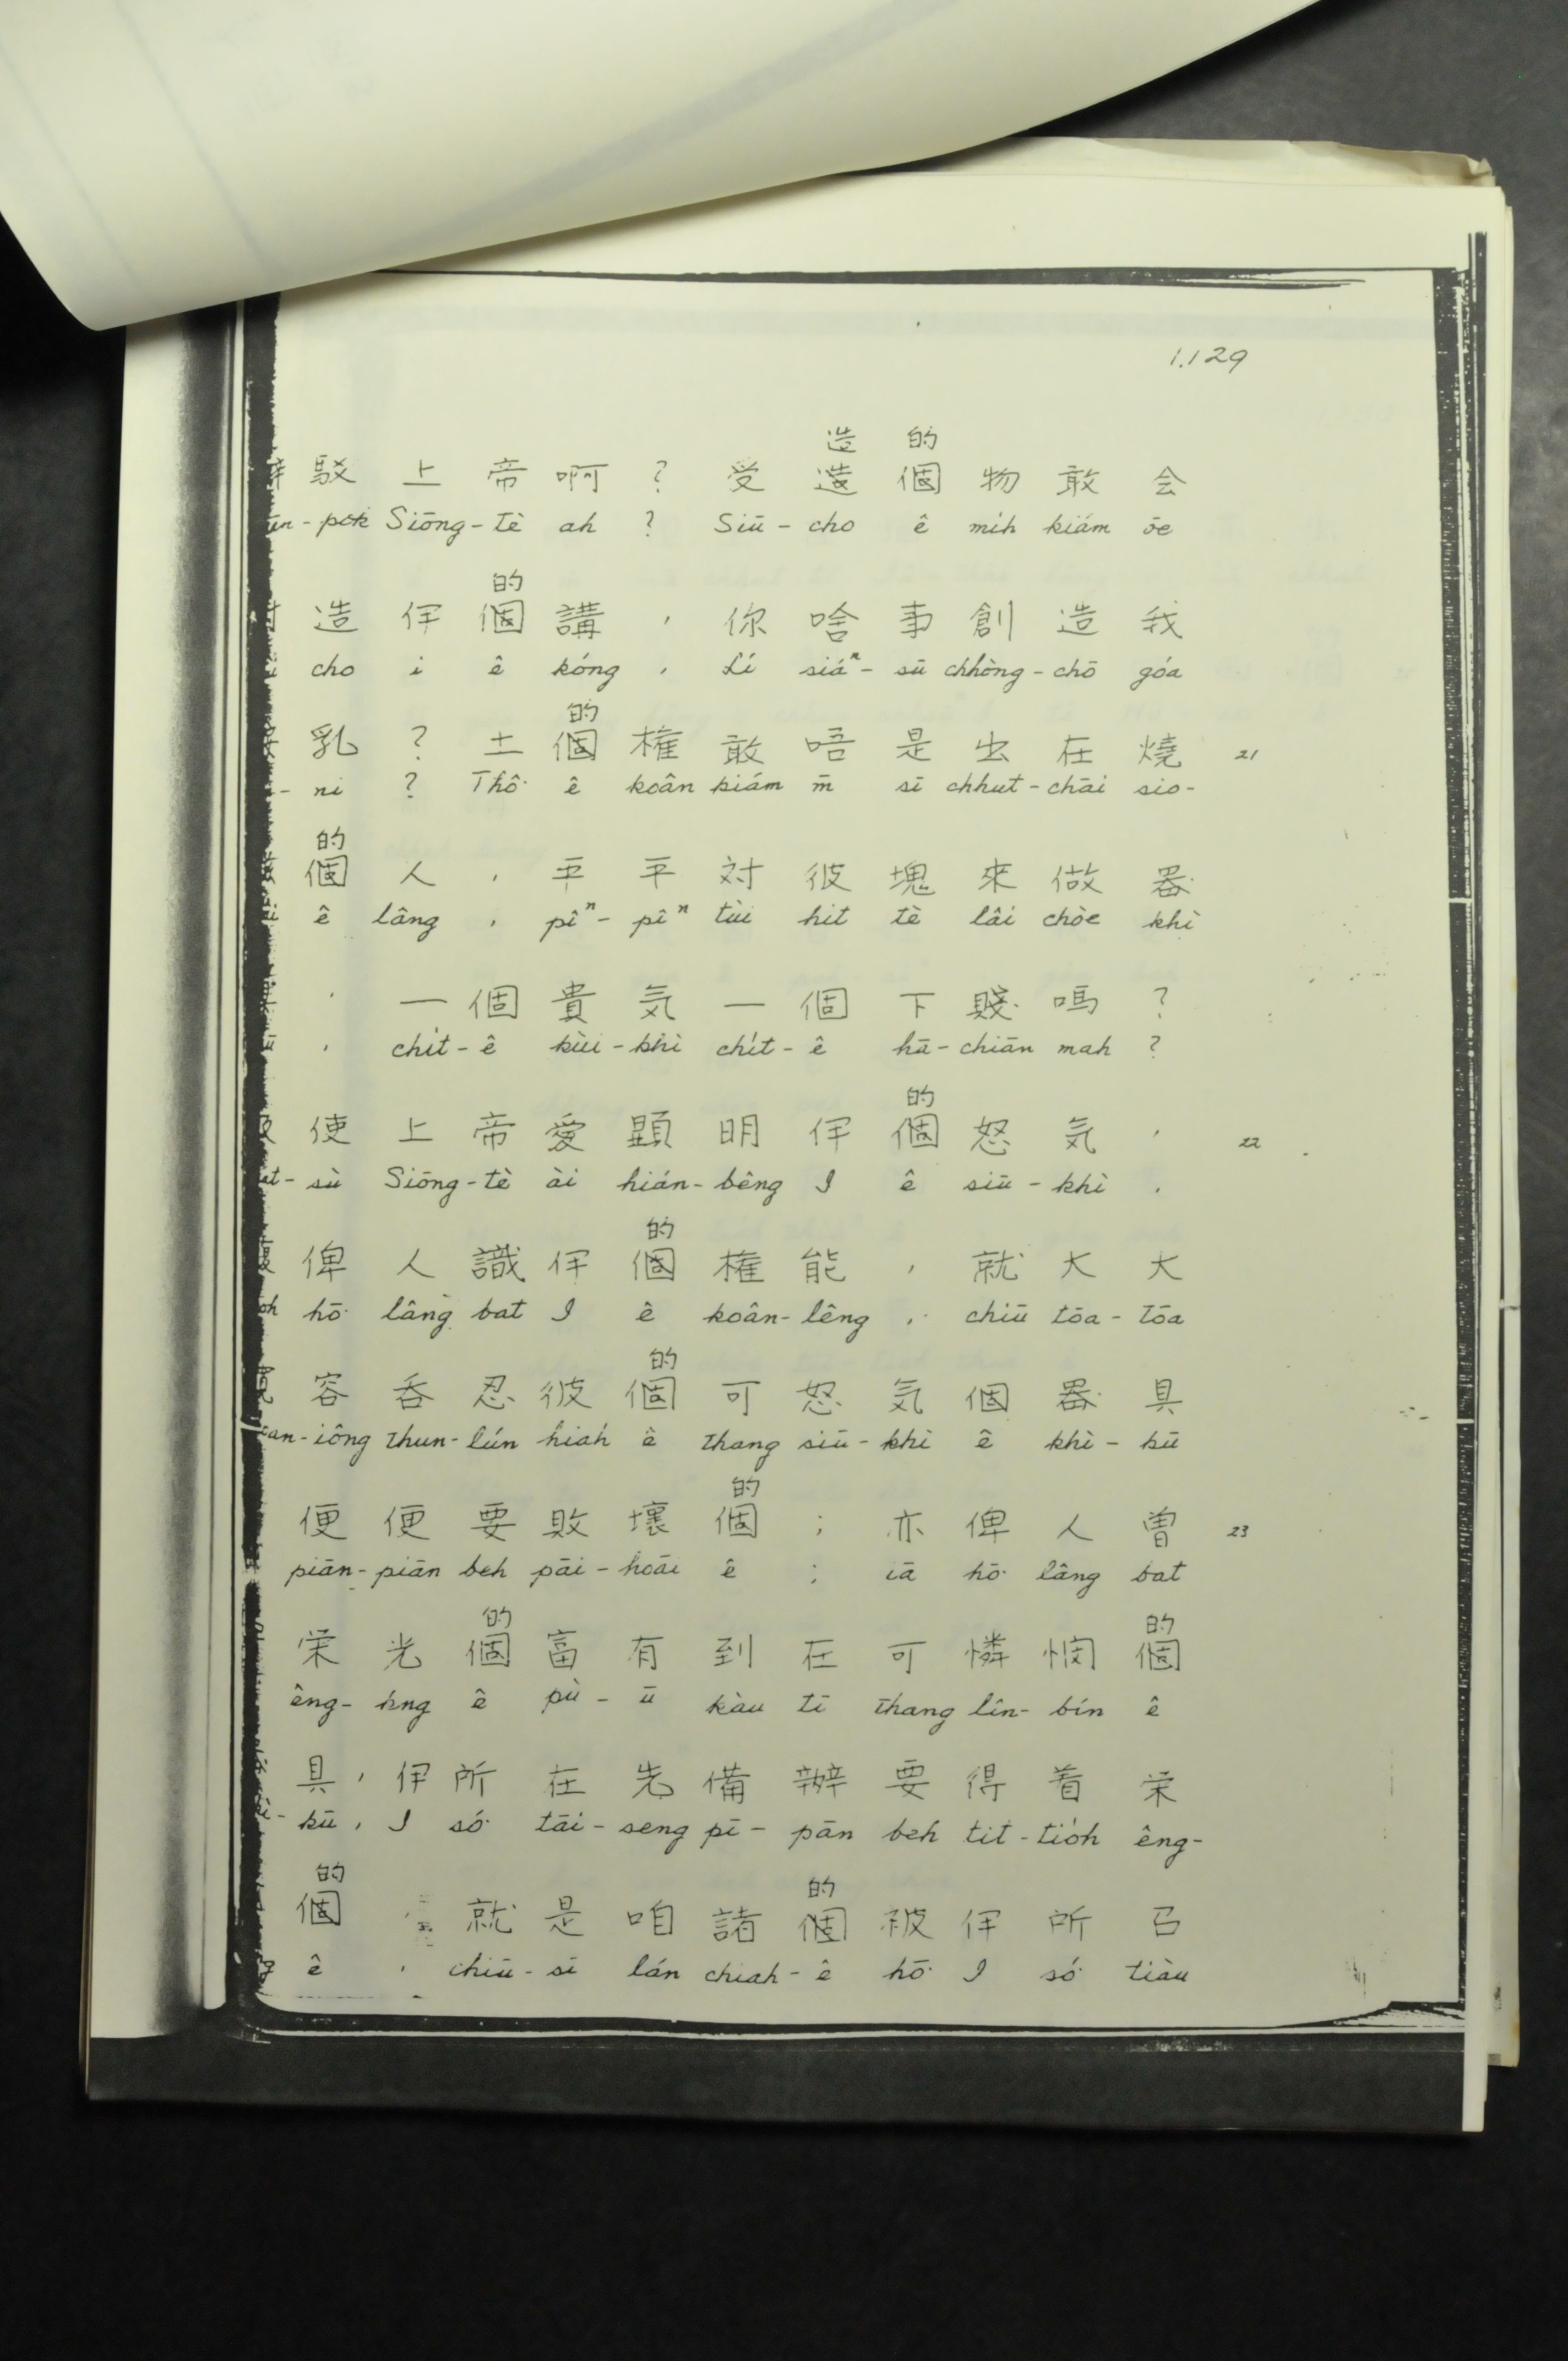 1.129
造 的
駁 上 帝 啊 ? 受 造 個 物 敢 会
pok Siōng-tè ah ? Siū-cho ê mi̍h kiám ōe
的
造 伊 個 講 , 你 啥 事 創 造 我
cho i ê kóng , Lí siáⁿ-sū chhòng-chō góa
的
乳 ? 土 個 権 敢 唔 是 出 在 燒 21
-ni ? Thô͘ ê koân kiám m̄ sī chhut-chāi sio-
的
個 人 , 平 平 対 彼 塊 來 做 器
ê lâng , pîⁿ-pîⁿ tùi hit tè lâi chòe khì
, 一 個 貴 気 一 個 下 賤 嗎 ?
, chi̍t-ê kùi-khì chi̍t-ê hā-chiān mah ?
的
使 上 帝 愛 顕 明 伊 個 怒 気 , 22
sù Siōng-tè ài hián-bêng I ê siū-khì ,
的
俾 人 識 伊 個 権 能 , 就 大 大
hō͘ lâng bat I ê koân-lêng , chiū tōa-tōa
的
容 吞 忍 彼 個 可 怒 気 個 器 具
-iông thun-lún hiah ê thang siū-khì ê khì-kū
的
便 便 要 敗 壞 個 ; 亦 俾 人 曽 23
piān-piān beh pāi-hoāi ê ; iā hō͘ lâng bat
的 的
栄 光 個 富 有 到 在 可 憐 憫 個
êng-kng ê pù-ū kàu tī thang lîn-bín ê
具 , 伊 所 在 先 備 辦 要 得 着 栄
-kū , I só͘ tāi-seng pī-pān beh tit-tio̍h êng-
的 的
個 , 就 是 咱 諸 個 被 伊 所 召
ê , chiū-sī lán chiah-ê hō͘ I só͘ tiàu